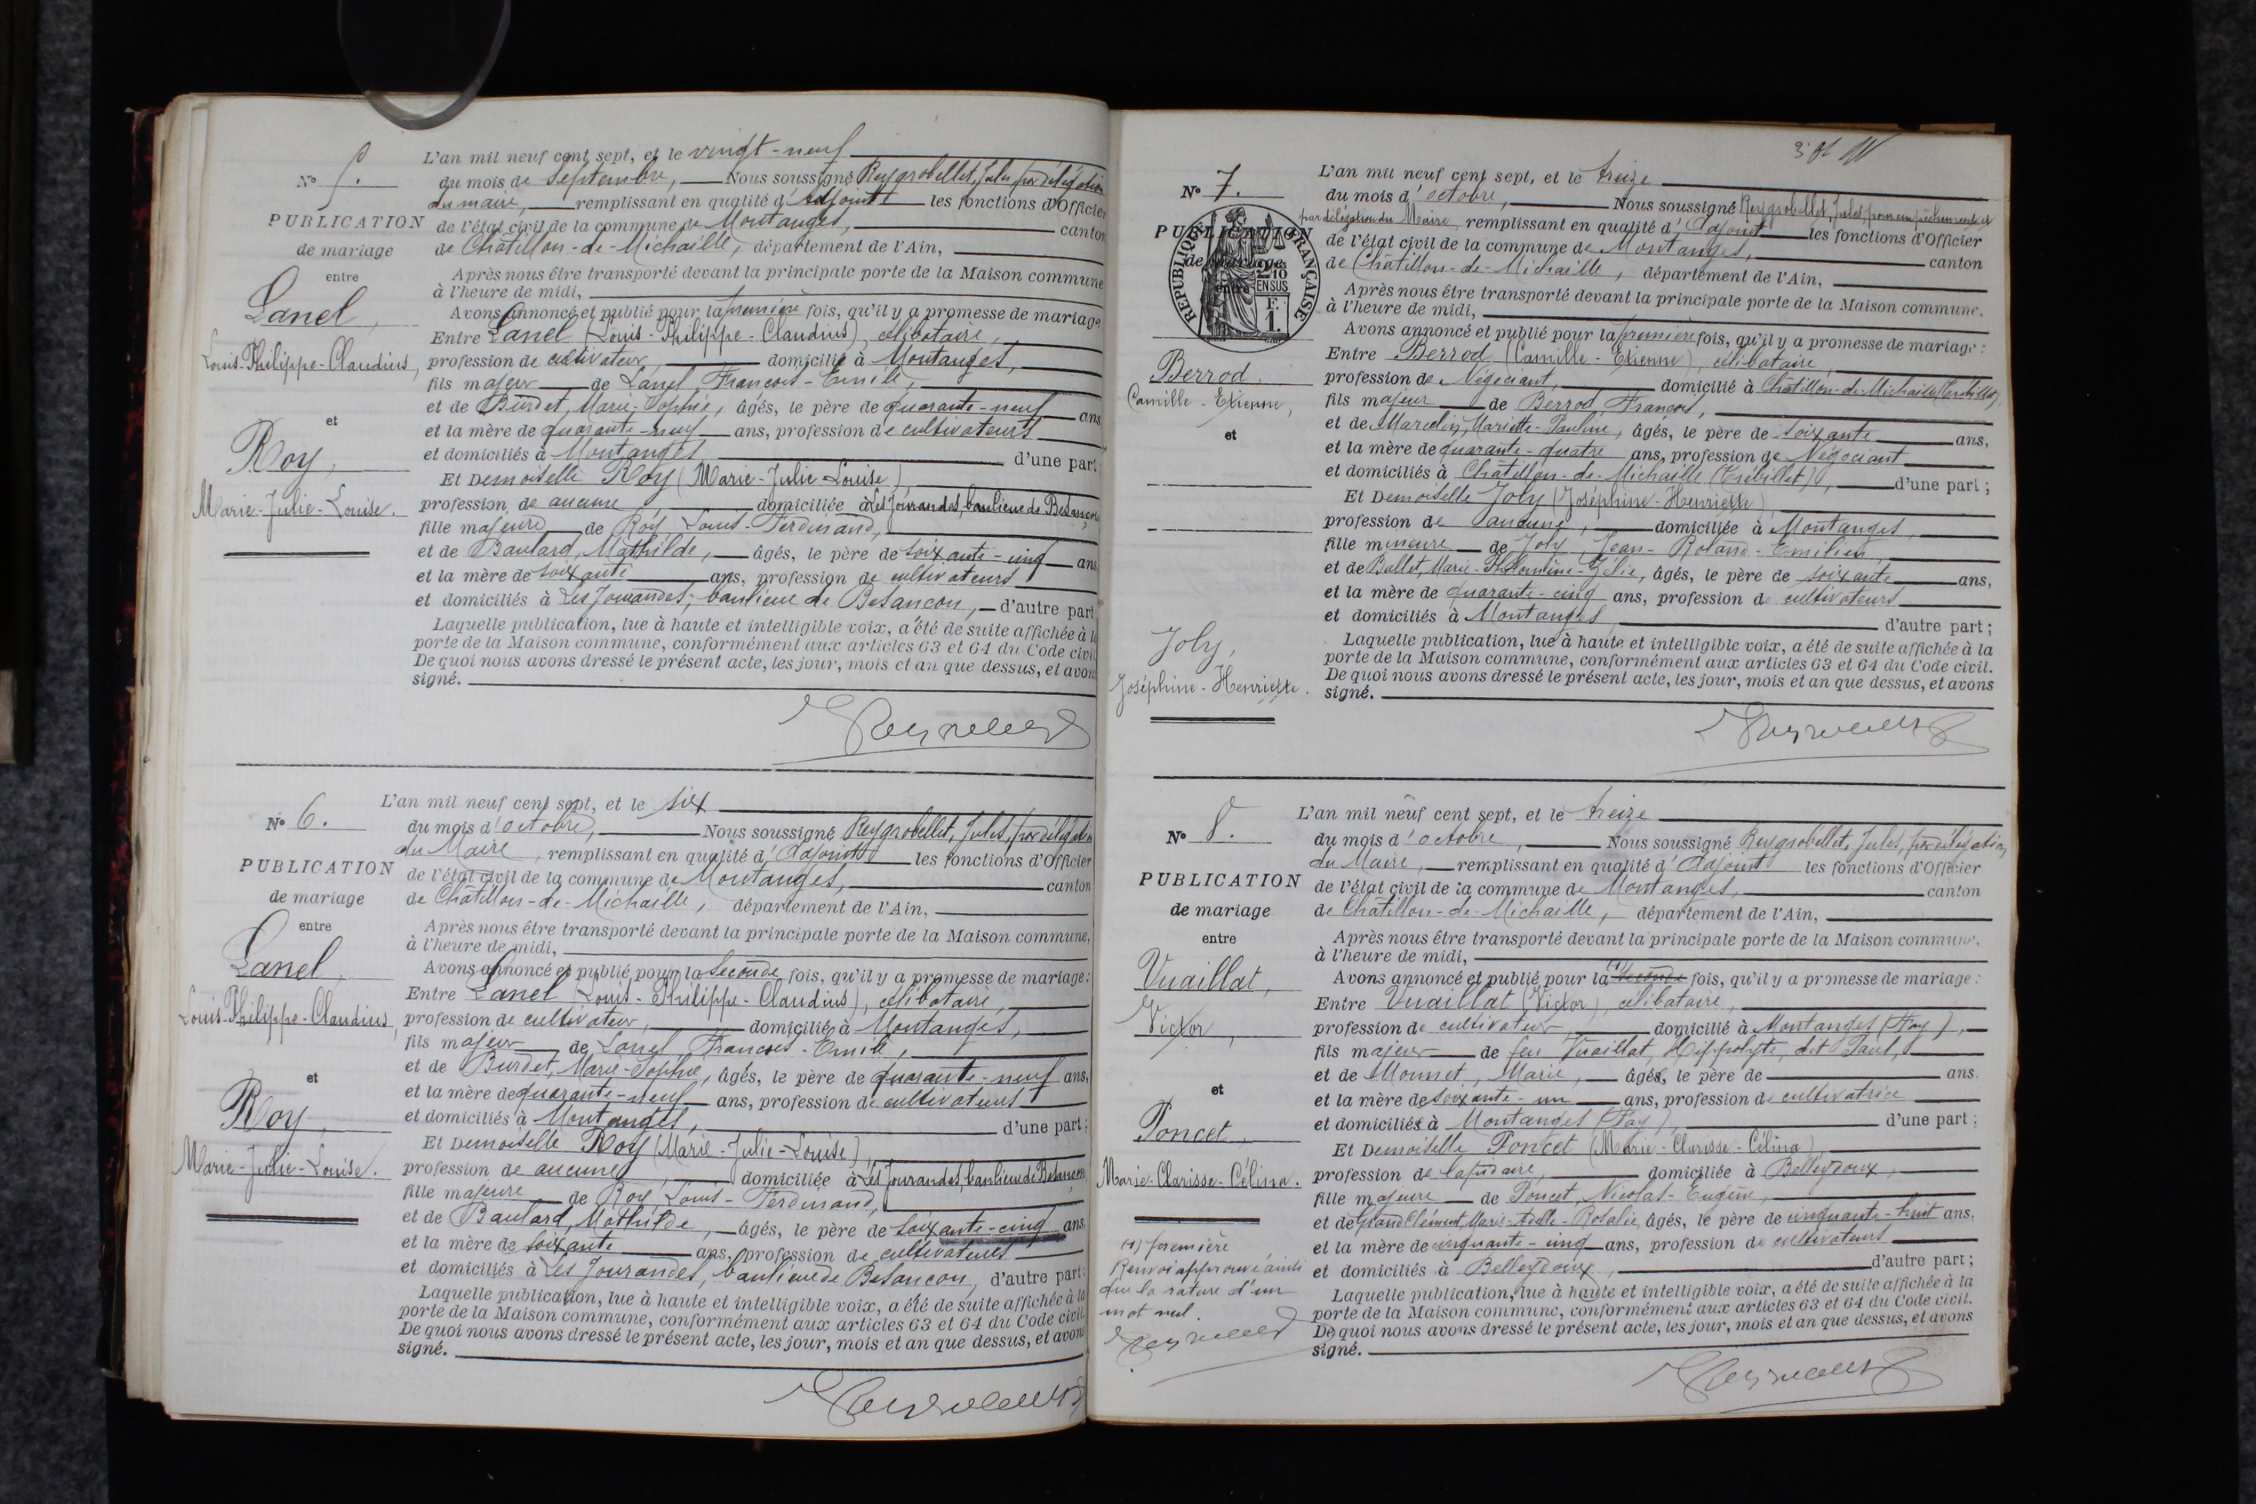 L'an mil neuf cent sept, et le vingt-neuf
N° 5. du mois de Septembre, Nous soussigné Reygrobellet, Jules, par délégation
du maire, remplissant en qualité d'Adjoint les fonctions d'Officier
PUBLICATION de l'état civil de la commune de Montanges, canton
de mariage de Châtillon-de-Michaille, département de l'Ain,
entre Après nous être transporté devant la principale porte de la Maison commune
à l'heure de midi,
Lanel, Avons annoncé et publié pour la première fois, qu'il y a promesse de mariage
Entre Lanel (Louis-Philippe-Claudius), célibataire,
Louis-Philippe-Claudius, profession de cultivateur, domicilié à Montanges,
fils majeur de Lanel, François-Emile,
et de Burdet, Marie-Sophie, âgés, le père de quarante-neuf ans
et et la mère de quarante-neuf ans, profession de cultivateurs
Roy, et domiciliés à Montanges, d'une part;
Et Demoiselle Roy (Marie-Julie-Louise),
Marie-Julie-Louise. profession de aucune, domiciliée à Les Jourandes, banlieue de Besançon
fille majeure de Roy, Louis-Ferdinand,
et de Baulard, Mathilde, âgés, le père de soixante-cinq ans
et la mère de soixante ans, profession de cultivateurs
et domiciliés à Les Jourandes, banlieue de Besançon, d'autre part
Laquelle publication, lue à haute et intelligible voix, a été de suite affichée à la
porte de la Maison commune, conformément aux articles 63 et 64 du Code civil
De quoi nous avons dressé le présent acte, les jour, mois et an que dessus, et avons
signé.
L'an mil neuf cent sept, et le six
N° 6. du mois d'octobre, Nous soussigné Reygrobellet, Jules, par délégation
du Maire, remplissant en qualité d'Adjoint les fonctions d'Officier
PUBLICATION de l'état civil de la commune de Montanges, canton
de mariage de Châtillon-de-Michaille, département de l'Ain,
entre Après nous être transporté devant la principale porte de la Maison commune,
à l'heure de midi,
Lanel, Avons annoncé et publié pour la Seconde fois, qu'il y a promesse de mariage:
Entre Lanel (Louis-Philippe-Claudius), célibataire,
Louis-Philippe-Claudius, profession de cultivateur, domicilié à Montanges,
fils majeur de Lanel, François-Emile,
et de Burdet, Marie-Sophie, âgés, le père de quarante-neuf ans,
et et la mère de quarante-neuf ans, profession de cultivateurs
Roy, et domiciliés à Montanges, d'une part;
Et Demoiselle Roy (Marie-Julie-Louise),
Marie-Julie-Louise. profession de aucune, domiciliée à Les Jourandes, banlieue de Besançon,
fille majeure de Roy, Louis-Ferdinand,
et de Baulard, Mathilde, âgés, le père de soixante-cinq ans
et la mère de soixante ans, profession de cultivateurs
et domiciliés à Les Jourandes, banlieue de Besançon, d'autre part;
Laquelle publication, lue à haute et intelligible voix, a été de suite affichée à la
porte de la Maison commune, conformément aux articles 63 et 64 du Code civil.
De quoi nous avons dressé le présent acte, les jour, mois et an que dessus, et avons
signé.
L'an mil neuf cent sept, et le treize
N° 7. du mois d'octobre, Nous soussigné Reygrobellet, Jules, pour empêchement et
par délégation du Maire, remplissant en qualité d'Adjoint les fonctions d'Officier
PUBLICATION de l'état civil de la commune de Montanges, canton
de mariage de Châtillon-de-Michaille, département de l'Ain,
entre Après nous être transporté devant la principale porte de la Maison commune.
RÉPUBLIQUE FRANÇAISE
2/10 EN SUS
F. 1.
à l'heure de midi,
Avons annoncé et publié pour la première fois, qu'il y a promesse de mariage:
Entre Berrod (Camille-Etienne), célibataire,
Berrod, profession de Négociant, domicilié à Châtillon-de-Michaille (Trébillet),
Camille-Etienne, fils majeur de Berrod, François,
et et de Marclin, Mariette-Pauline, âgés, le père de soixante ans,
et la mère de quarante-quatre ans, profession de Négociant
et domiciliés à Châtillon-de-Michaille (Trébillet), d'une part;
Et Demoiselle Joly (Joséphine-Henriette)
profession de aucune, domiciliée à Montanges,
fille mineure de Joly, Jean-Roland-Emilien,
et de Ballet, Marie-Philomène-Julie, âgés, le père de soixante ans,
et la mère de quarante-cinq ans, profession de cultivateurs
et domiciliés à Montanges, d'autre part;
Joly, Laquelle publication, lue à haute et intelligible voix, a été de suite affichée à la
porte de la Maison commune, conformément aux articles 63 et 64 du Code civil.
Joséphine-Henriette. De quoi nous avons dressé le présent acte, les jour, mois et an que dessus, et avons
signé.
L'an mil neuf cent sept, et le treize
N° 8. du mois d'octobre, Nous soussigné Reygrobellet, Jules, par délégation
du Maire, remplissant en qualité d'Adjoint les fonctions d'Officier
PUBLICATION de l'état civil de la commune de Montanges, canton
de mariage de Châtillon-de-Michaille, département de l'Ain,
entre Après nous être transporté devant la principale porte de la Maison commune.
à l'heure de midi,
Vuaillat, Avons annoncé et publié pour la (1) seconde fois, qu'il y a promesse de mariage:
Entre Vuaillat (Victor), célibataire,
Victor, profession de cultivateur, domicilié à Montanges (Fay),
fils majeur de feu Vuaillat, Hippolyte, dit Paul,
et de Monnet, Marie, âgés, le père de ans.
et et la mère de soixante-un ans, profession de cultivatrice
Poncet, et domiciliés à Montanges (Fay), d'une part;
Et Demoiselle Poncet (Marie-Clarisse-Célina)
Marie-Clarisse-Célina. profession de lapidaire, domiciliée à Belleydoux,
fille majeure de Poncet, Nicolas-Eugène,
et de Grand Clément, Marie-Adelle-Rosalie, âgés, le père de cinquante-huit ans.
et la mère de cinquante-cinq ans, profession de cultivateurs
et domiciliés à Belleydoux, d'autre part;
Laquelle publication, lue à haute et intelligible voix, a été de suite affichée à la
porte de la Maison commune, conformément aux articles 63 et 64 du Code civil.
De quoi nous avons dressé le présent acte, les jour, mois et an que dessus, et avons
signé.
(1) première
Renvoi approuvé ainsi
que la rature d'un
mot nul.